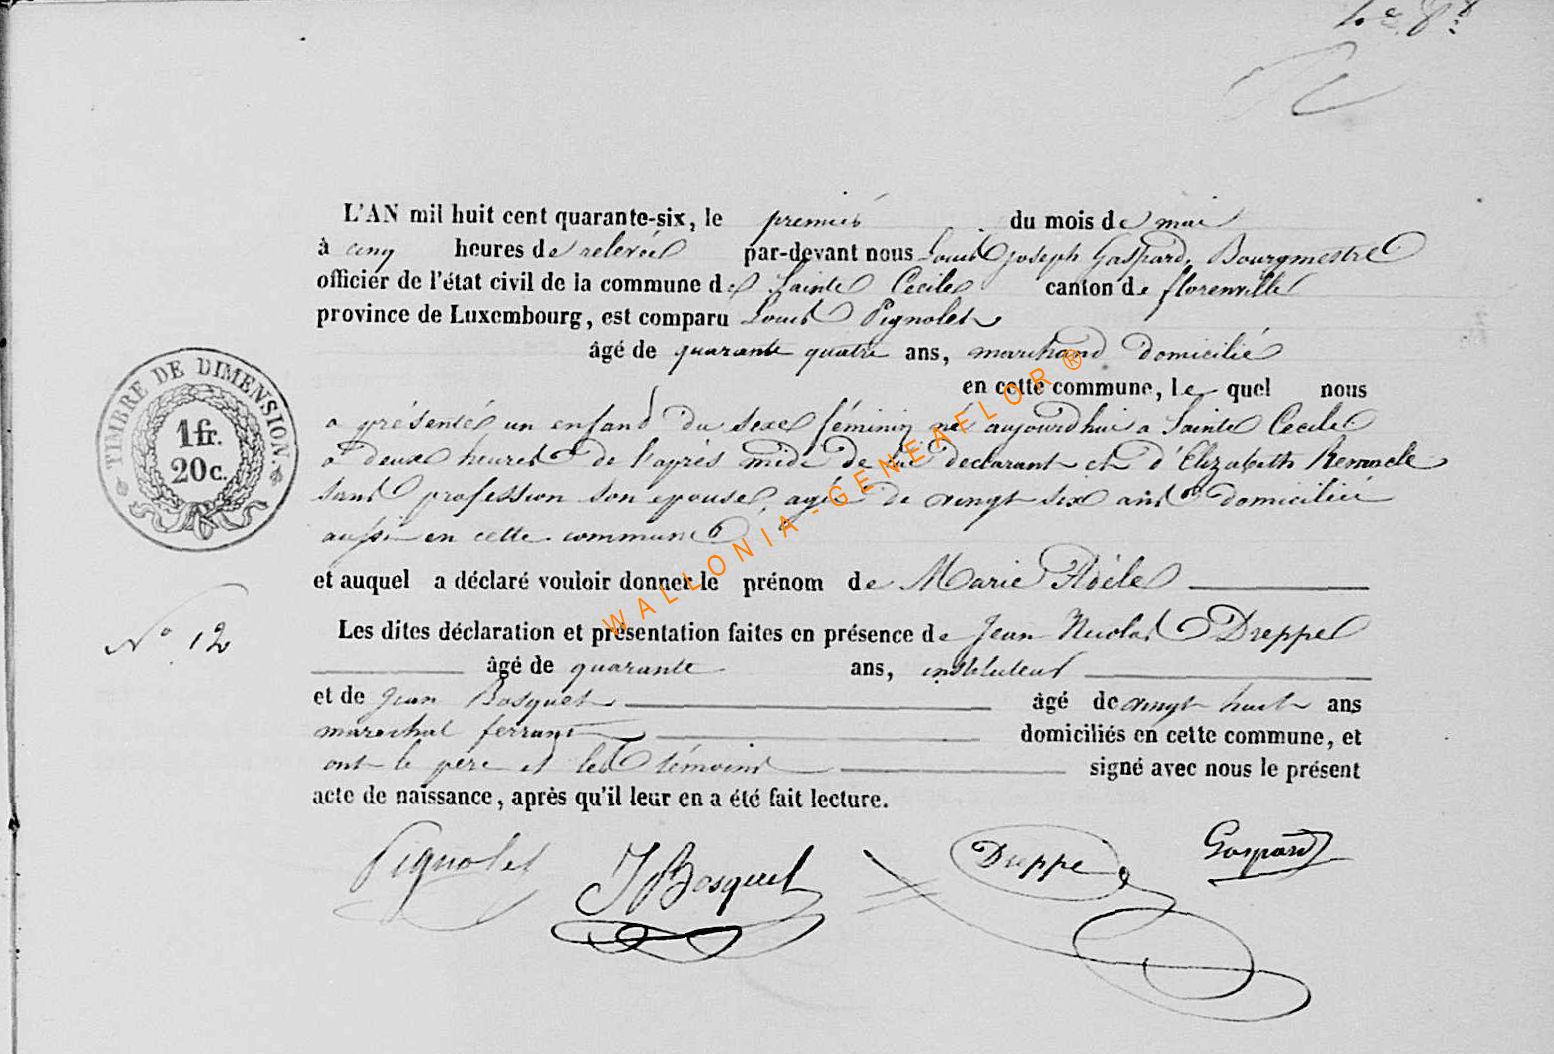 L'AN mil huit cent quarante-six, le premier du mois de mai
à cinq heures de relevée par-devant nous Louis Joseph Gaspard, Bourgmestre
officier de l'état civil de la commune de Sainte Cecile canton de florenville
province de Luxembourg, est comparu Louis Pignolet
âgé de quarante quatre ans, marchand domicilié
en cette commune, le quel nous
a présenté un enfand du sexe féminin né aujourdhui a Sainte Cecile
a deux heures de l'après midi de lui declarant et d'Elizabeth Remacle
sans profession son epouse, agée de vingt six ans domiciliée
aussi en cette commune
et auquel a déclaré vouloir donner le prénom de Marie Adèle
N° 12
Les dites déclaration et présentation faites en présence de Jean Nicolas Dreppe
âgé de quarante ans, instituteur
et de Jean Bosquet âgé de vingt huit ans
marechal ferrant domiciliés en cette commune, et
ont le père et les témoins signé avec nous le présent
acte de naissance, après qu'il leur en a été fait lecture.
Pignolet JBosquet Dreppe Gaspard
TIMBRE DE DIMENSION
1 fr.
20 c.
WALLONIA-GENEAFLOR ®